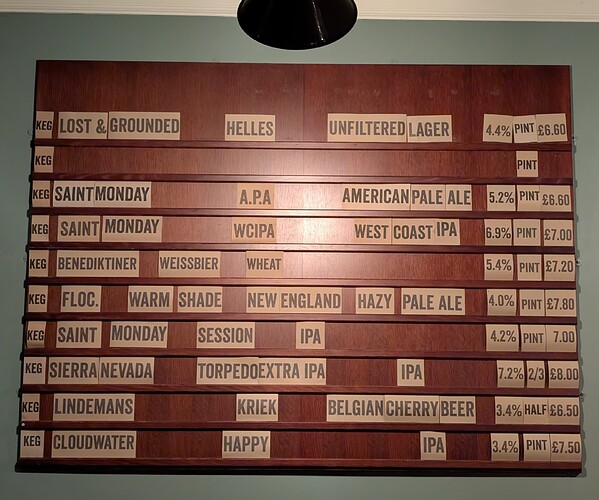 KEG LOST & GROUNDED HELLES UNFILTERED LAGER 4.4% PINT £6.60
KEG PINT
KEG SAINT MONDAY A.P.A AMERICAN PALE ALE 5.2% PINT £6.60
KEG SAINT MONDAY WCIPA WEST COAST IPA 6.9% PINT £7.00
KEG BENEDIKTINER WEISSBIER WHEAT 5.4% PINT £7.20
KEG FLOC. WARM SHADE NEW ENGLAND HAZY PALE ALE 4.0% PINT £7.80
KEG SAINT MONDAY SESSION IPA 4.2% PINT 7.00
KEG SIERRA NEVADA TORPEDO EXTRA IPA IPA 7.2% 2/3 £6.00
KEG LINDEMANS KRIEK BELGIAN CHERRY BEER 3.4% HALF £6.50
KEG CLOUDWATER HAPPY IPA 3.4% PINT £7.50